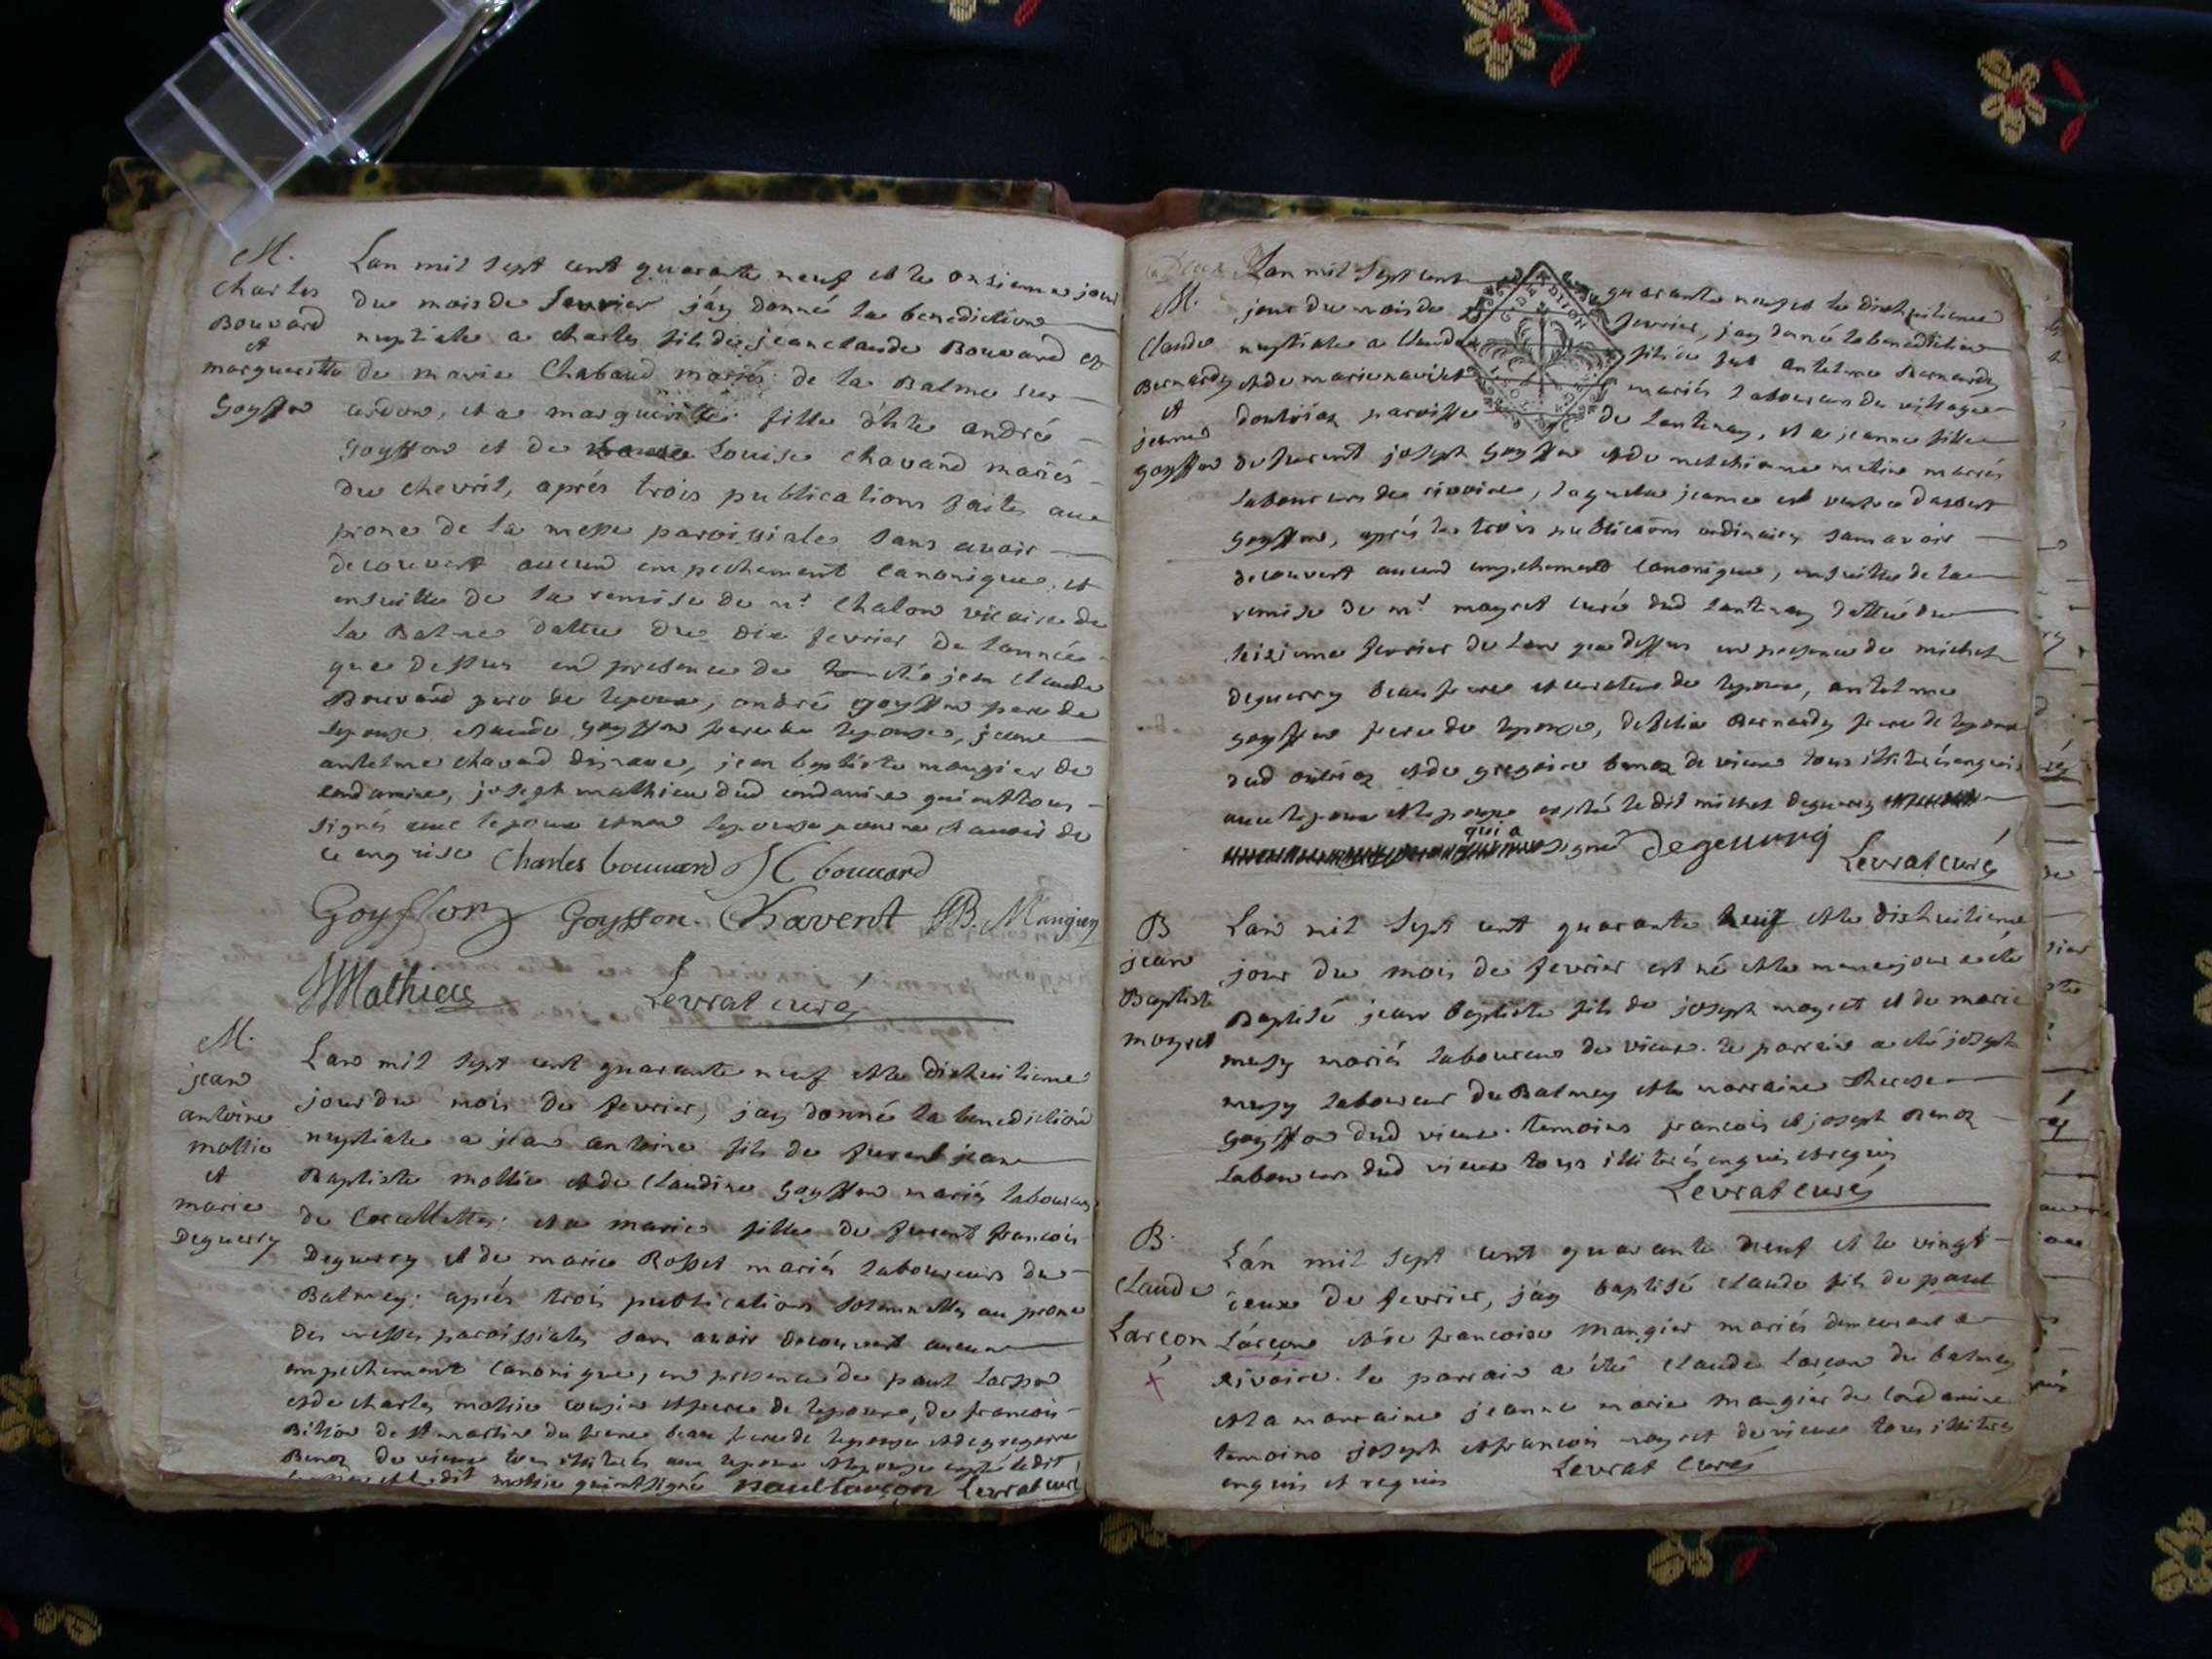 M.
Charles
Bouvard
et
margueritte
Goyffon
Lan mil sept cent quarante neuf et le onsieme jour
du mois de fevrier jáy donné la benediction
nuptiale a charles fils de jean claude Bouvard et
de marie Chabaud mariés de la Balme sur
cerdon, et a margueritte fille d'hte andré
Goyffon et de Louise chavand mariés
du chevril, aprés trois publications faites au
prone de la messe paroissiale sans avoir
decouvert aucund empechement canonique, et
ensuitte de la remise de mr. Chalon vicaire de
la Balme dattée du dix fevrier de lannée
que dessus end presence de jean claude
Bouvard pere de lepoux, andré goyffon pere de
lepouse, claude goyffon frere de lepouse, jean
antelme chavand, jean baptiste mangier de
condamine, joseph mathieu dud condamine qui ont tous
signés avec lepoux et non lepouse pour ne scavoir de
ce enquise Charles bouvard JC bouvard
Goyffon Goyffon. Chavent JB. Mangier
JMathieu Levrat curé
M.
jean
antoine
mollie
et
marie
Deguerry
Lan mil sept cent quarante neuf et le dixhuitieme
jour du mois de fevrier, jay donné la benediction
nuptiale a jean antoine fils de furent jean
Baptiste mollie et de claudine Goyffon mariés laboureurs
de et a marie fille de furent francois
Deguerry et de marie Rosset mariés laboureurs du
Balmey; aprés trois publications solemnelles au prone
des messes paroissiales sans avoir decouvert aucun
empechement canonique, en presence de paul larson
et de charles mollie cousin et frere de lepoux, de francois
Billion de st martin du frene beau frere de lepouse et de gregoire
Benoz de vieux tous illiterés avec lepoux et lepouse excepté ledit
et ledit mollie qui ont signé paul larçon Levrat curé
Deux
M.
Claude
Bernardy
et
jeanne
goyffon
Lan mil sept cent quarante neuf et le dixhuitieme
jour du mois de fevrier, jay donné la benediction
nuptiale a Claude fils de fut antelme Bernardy
et de marie navilet mariés laboureurs du village
doutriaz paroisse de Lantenay, et a jeanne fille
de furent joseph Goyffon et de melchionne mariés
laboureurs de rivoire, laquelle jeanne est veufve
goyffon, aprés les trois publications ordinaires sans avoir
decouvert aucund empechement canonique, ensuitte de la
remise de mr mayret curé dud Lantenay dattée du
seizieme fevrier de lan que dessus en presence de michel
deguerry beau frere et curateur de lepoux, antelme
goyffon frere de lepouse, Bernardy frere de lepoux
dud outriaz et de gregoire benoz de vieux tous illiterés enquis
avec lepoux et lepouse excepté ledit michel deguerry
qui a
signé Degeurry Levrat curé
B
jean
Baptiste
mayret
Lan mil sept cent quarante neuf et le dixhuitieme
jour du mois de fevrier est né et le meme jour a eté
Baptisé jean baptiste fils de joseph mayret et de marie
musy mariés laboureurs de vieux. le parrain a eté joseph
musy laboureur du Balmey et la marraine therese
Goyffon dud vieux. temoins francois et joseph Benoz
laboureurs dud vieux tous illiterés enquis et requis
Levrat curé
B.
Claude
Larçon
Lán mil sept cent quarante neuf et le vingt
deux de fevrier, jáy baptisé claude fils de paul
Lárçon et de francoise mangier mariés demeurant a
rivoire. le parrain a été claude Larçon du balmey
et la marraine jeanne marie mangier de condamine
temoins joseph et francois mayret de vieux tous illiterés
enquis et requis Levrat curé